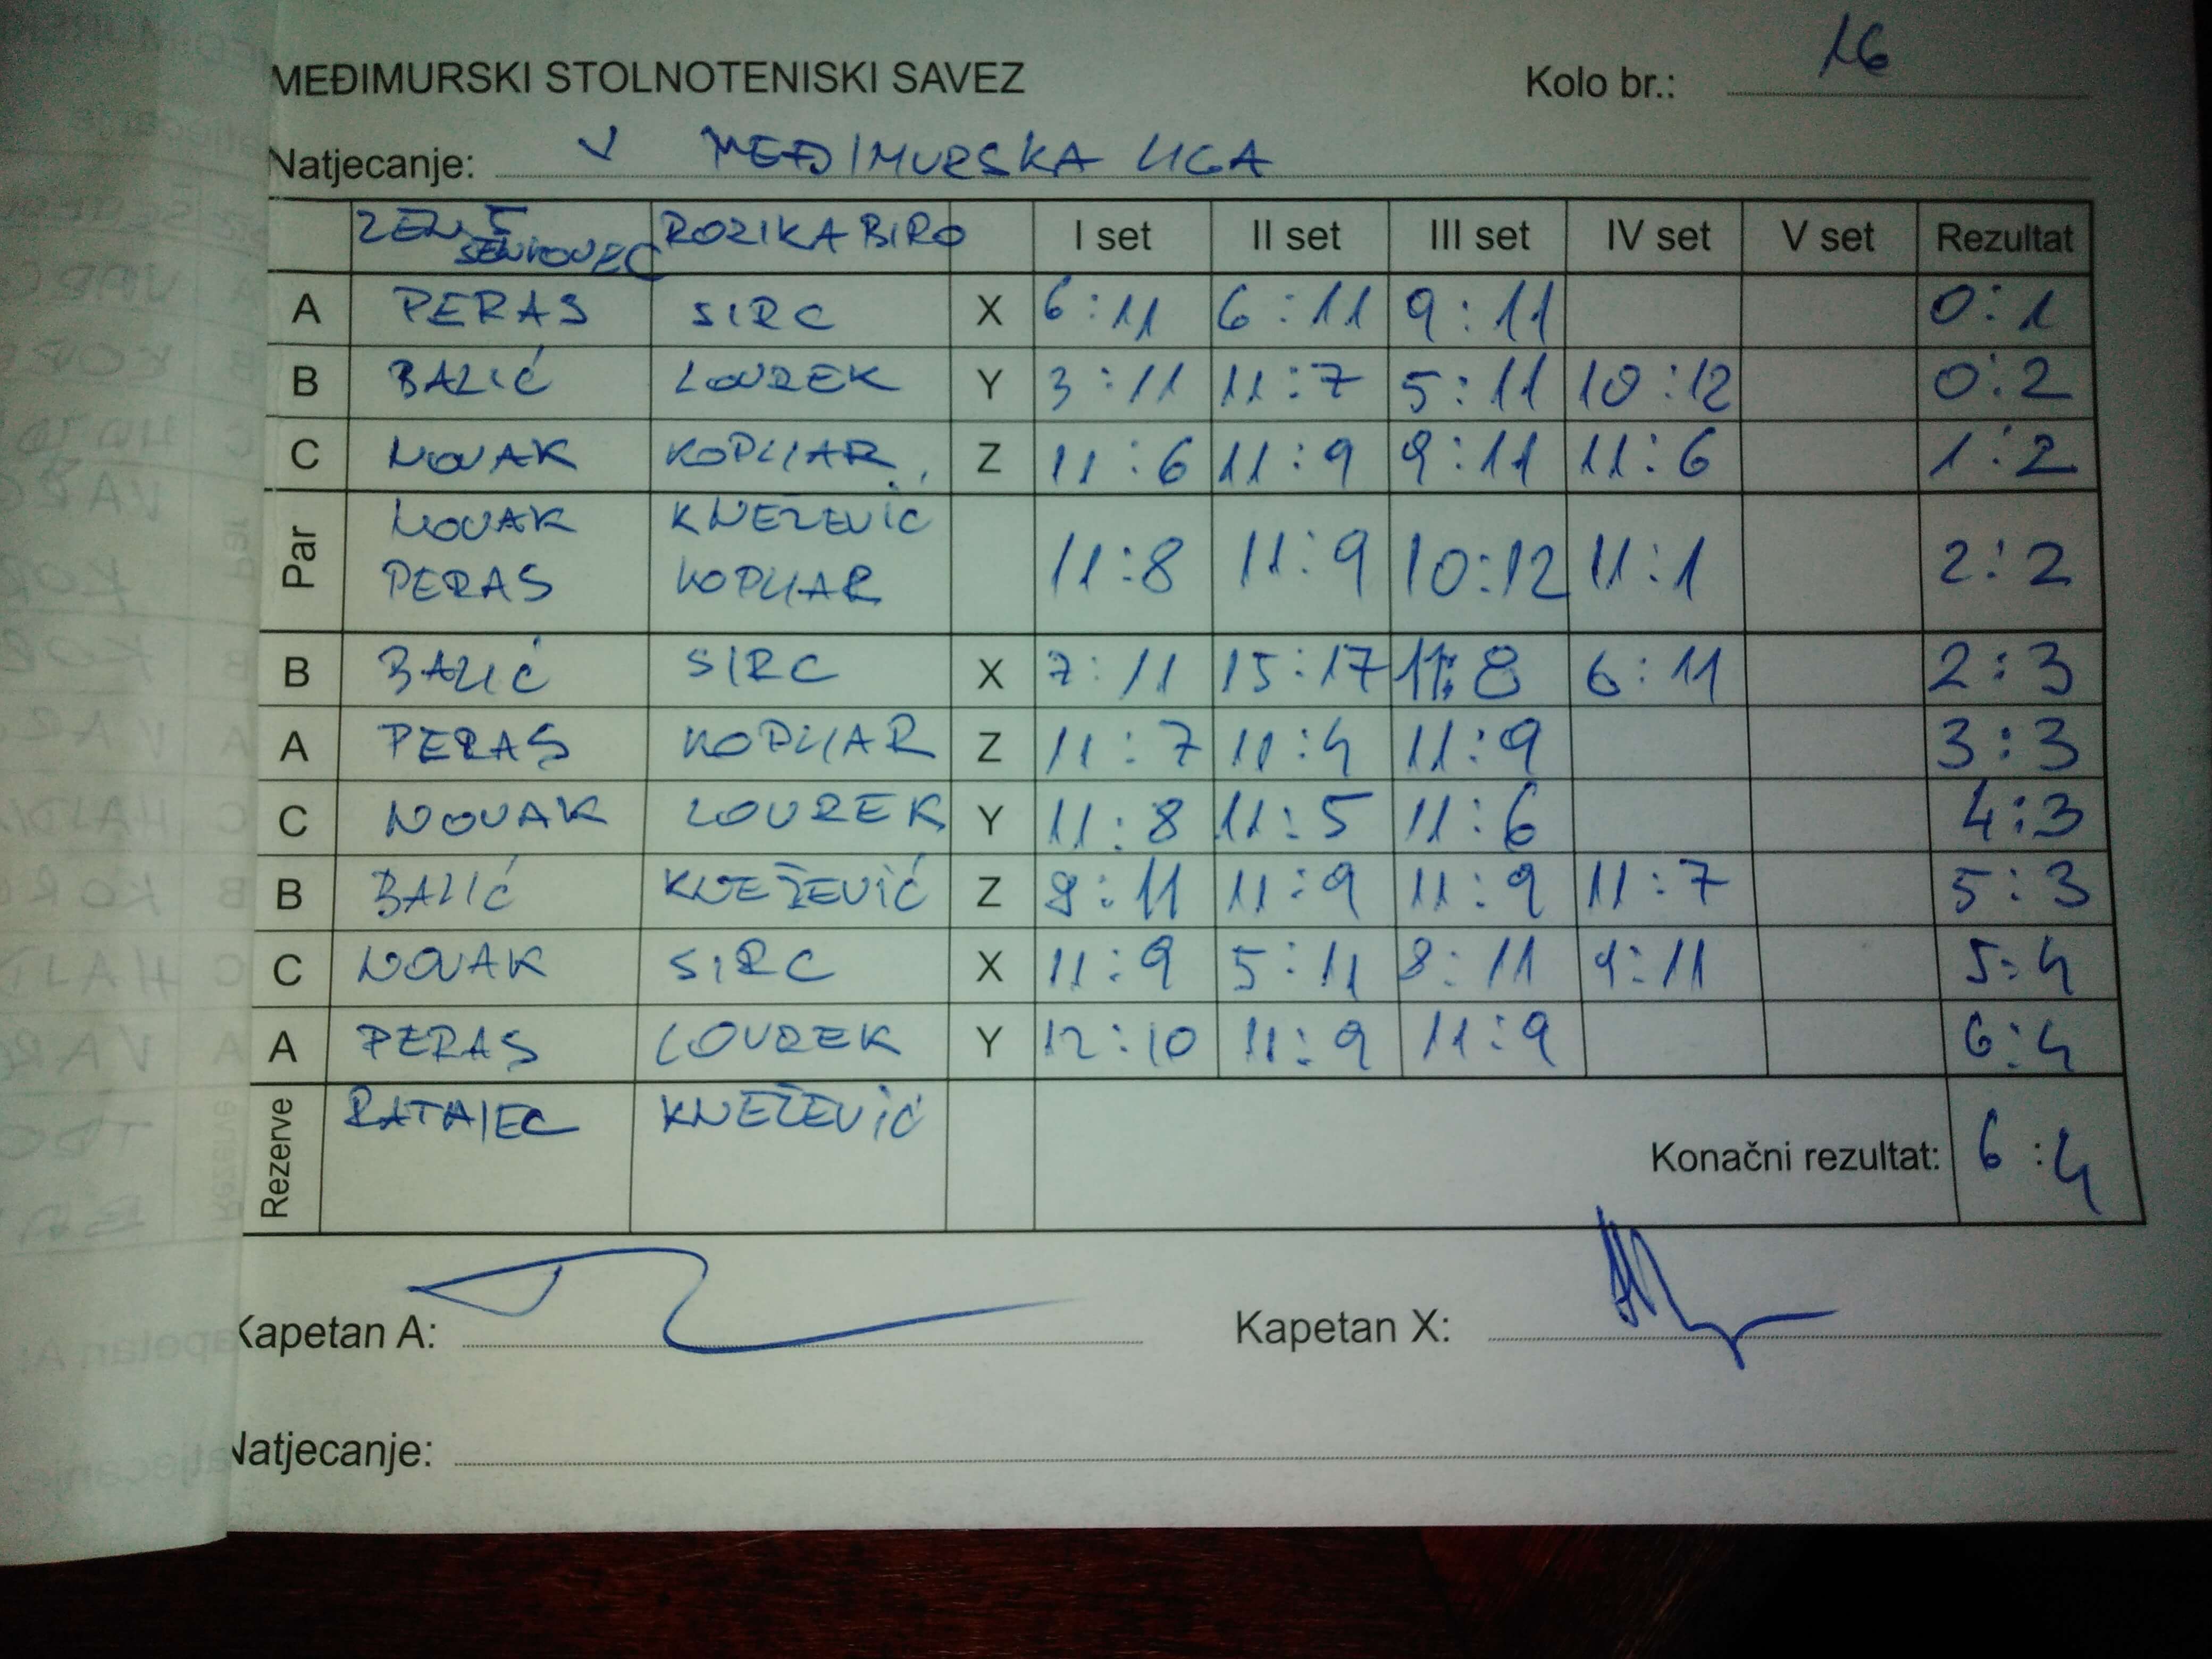 MEĐIMURSKI STOLNOTENISKI SAVEZ Kolo br.: 16
Natjecanje: V MEĐIMURSKA LIGA
ROZIKA BIRO I set II set III set IV set V set Rezultat
SENKOVEC
A PERAS SIRC X 6:11 6:11 9:11 0:1
B BALIĆ LOVREK Y 3:11 11:7 5:11 10:12 0:2
C NOVAK KOPLJAR Z 11:6 11:9 9:11 11:6 1:2
NOVAK KNEZEVIĆ
Par 11:8 11:9 10:12 11:1 2:2
PERAS KOPLJAR
B BALIĆ SIRC X 7:11 15:17 11:8 6:11 2:3
A PERAS KOPLJAR Z 11:7 11:4 11:9 3:3
C NOVAK LOVREK Y 11:8 11:5 11:6 4:3
B BALIĆ KNEŽEVIĆ Z 9:11 11:9 11:9 11:7 5:3
C NOVAK SIRC X 11:9 5:11 8:11 9:11 5:4
A PERAS LOVREK Y 12:10 11:9 11:9 6:4
RATAJEC KNEŽEVIĆ
Rezerve Konačni rezultat: 6:4
Kapetan A: Kapetan X:
Natjecanje: